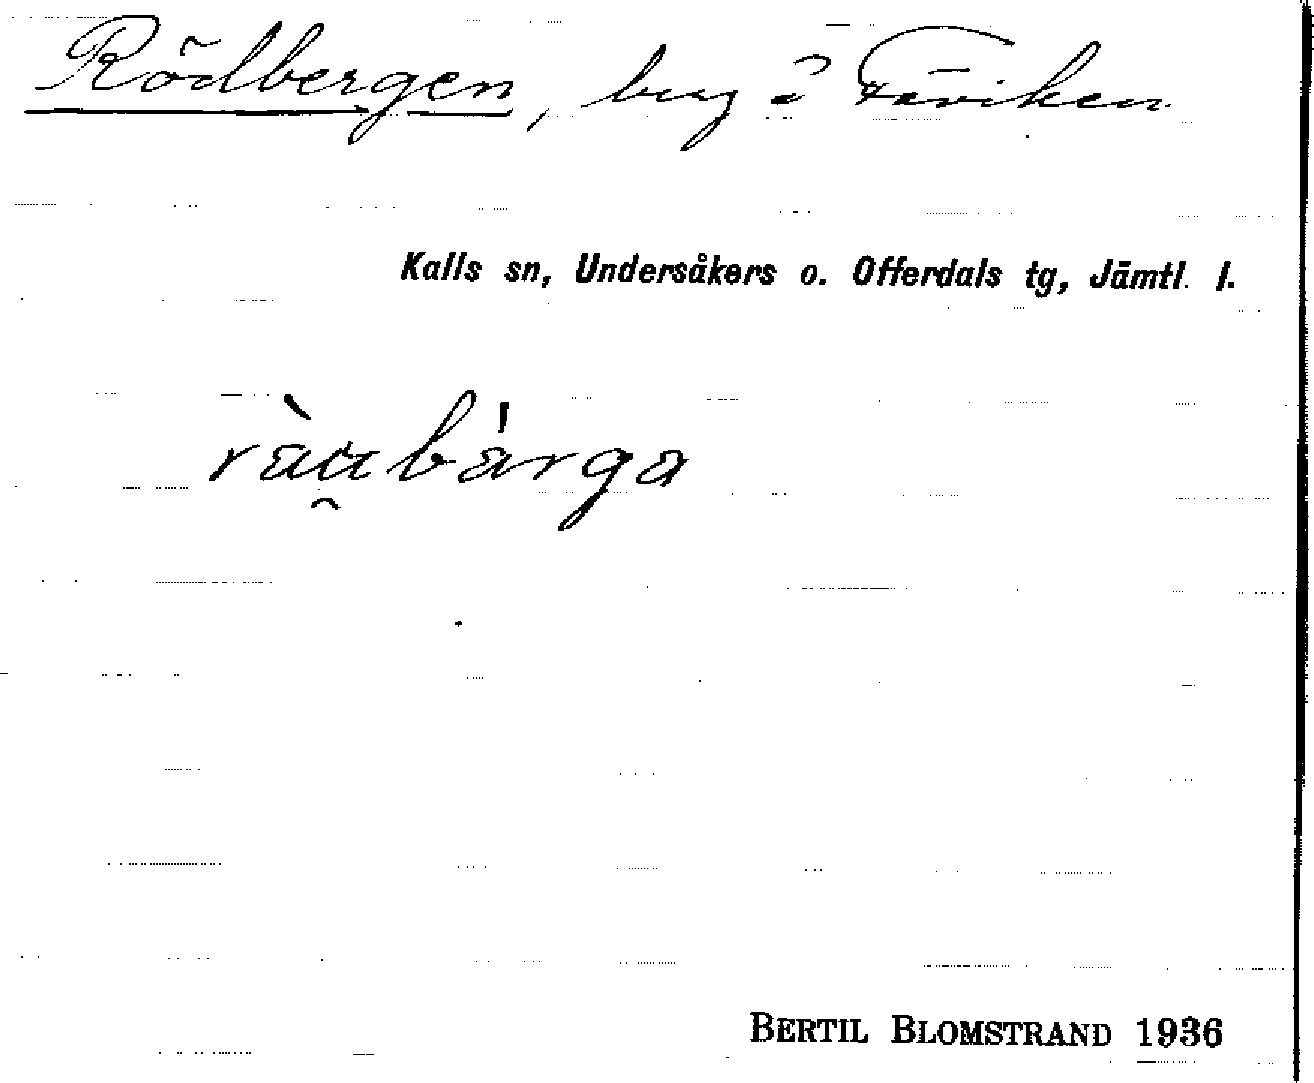 Rödbergen, berg å Fäviken
Kalls sn, Undersåkers o. Offerdals tg, Jämtl. l.
ràu̯bárga
BERTIL BLOMSTRAND 1936